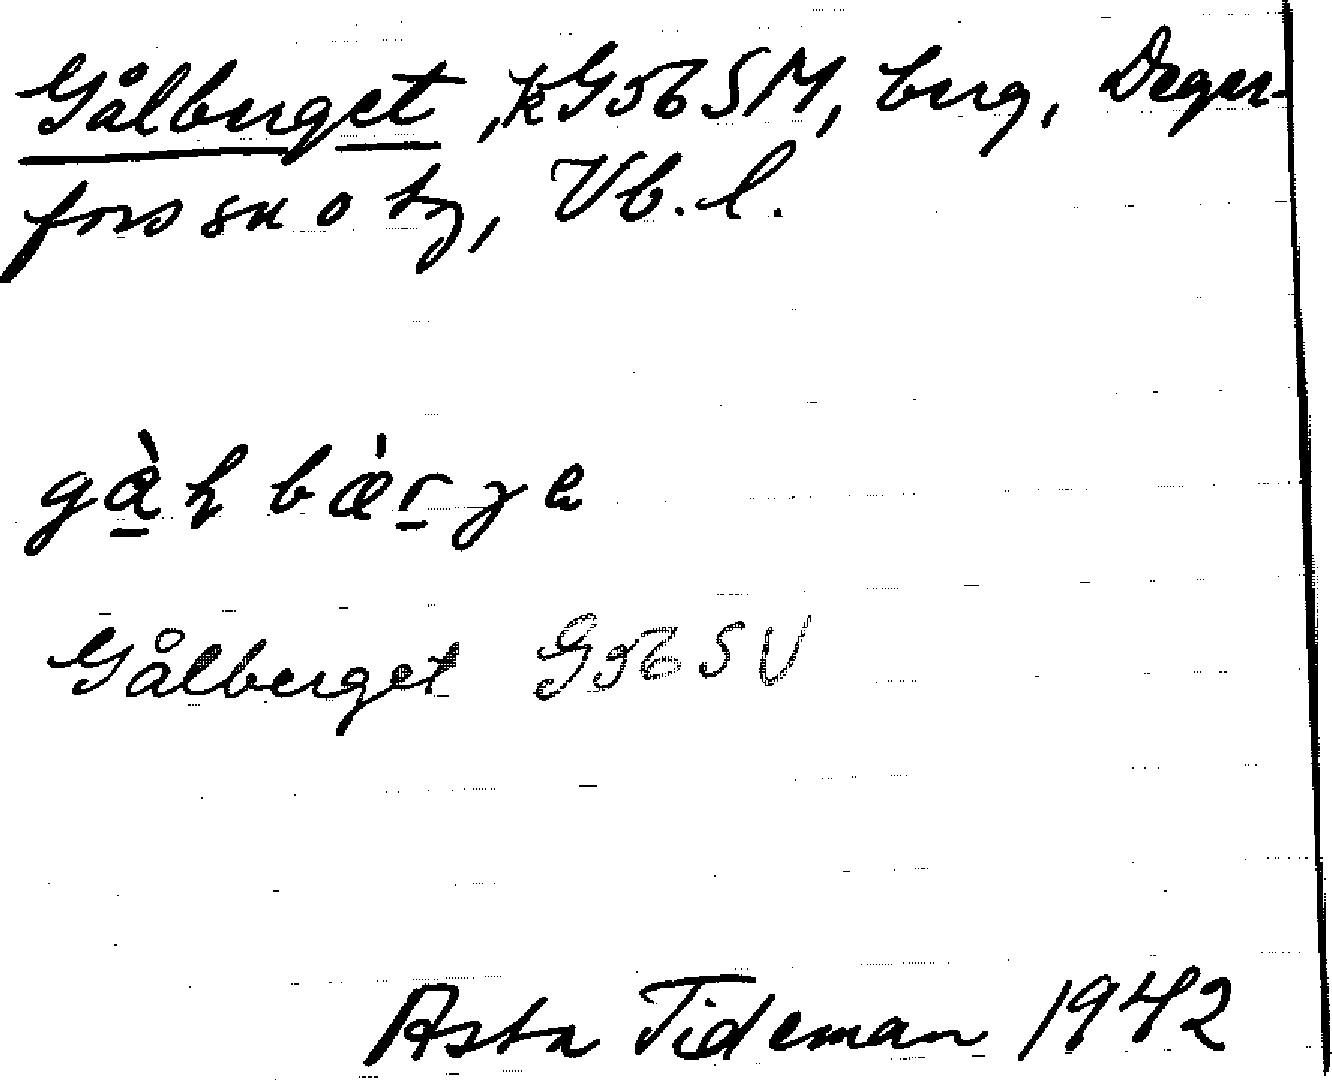 Gålberget, kG56SM, berg, Deger-
fors sn o tg, Vb. l.
gàɫbǽrgɐ
Gålberget G56SV
Asta Tideman 1942